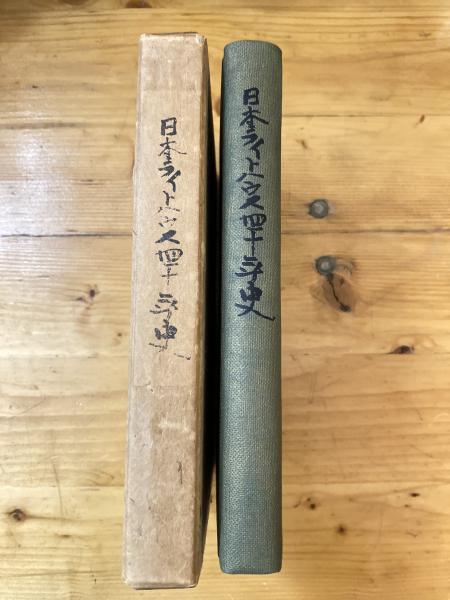 日本ライトハウス四十年史
日本ライトハウス四十年史